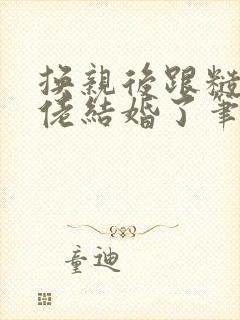 換親後跟糙
佬結婚了筆
童迪